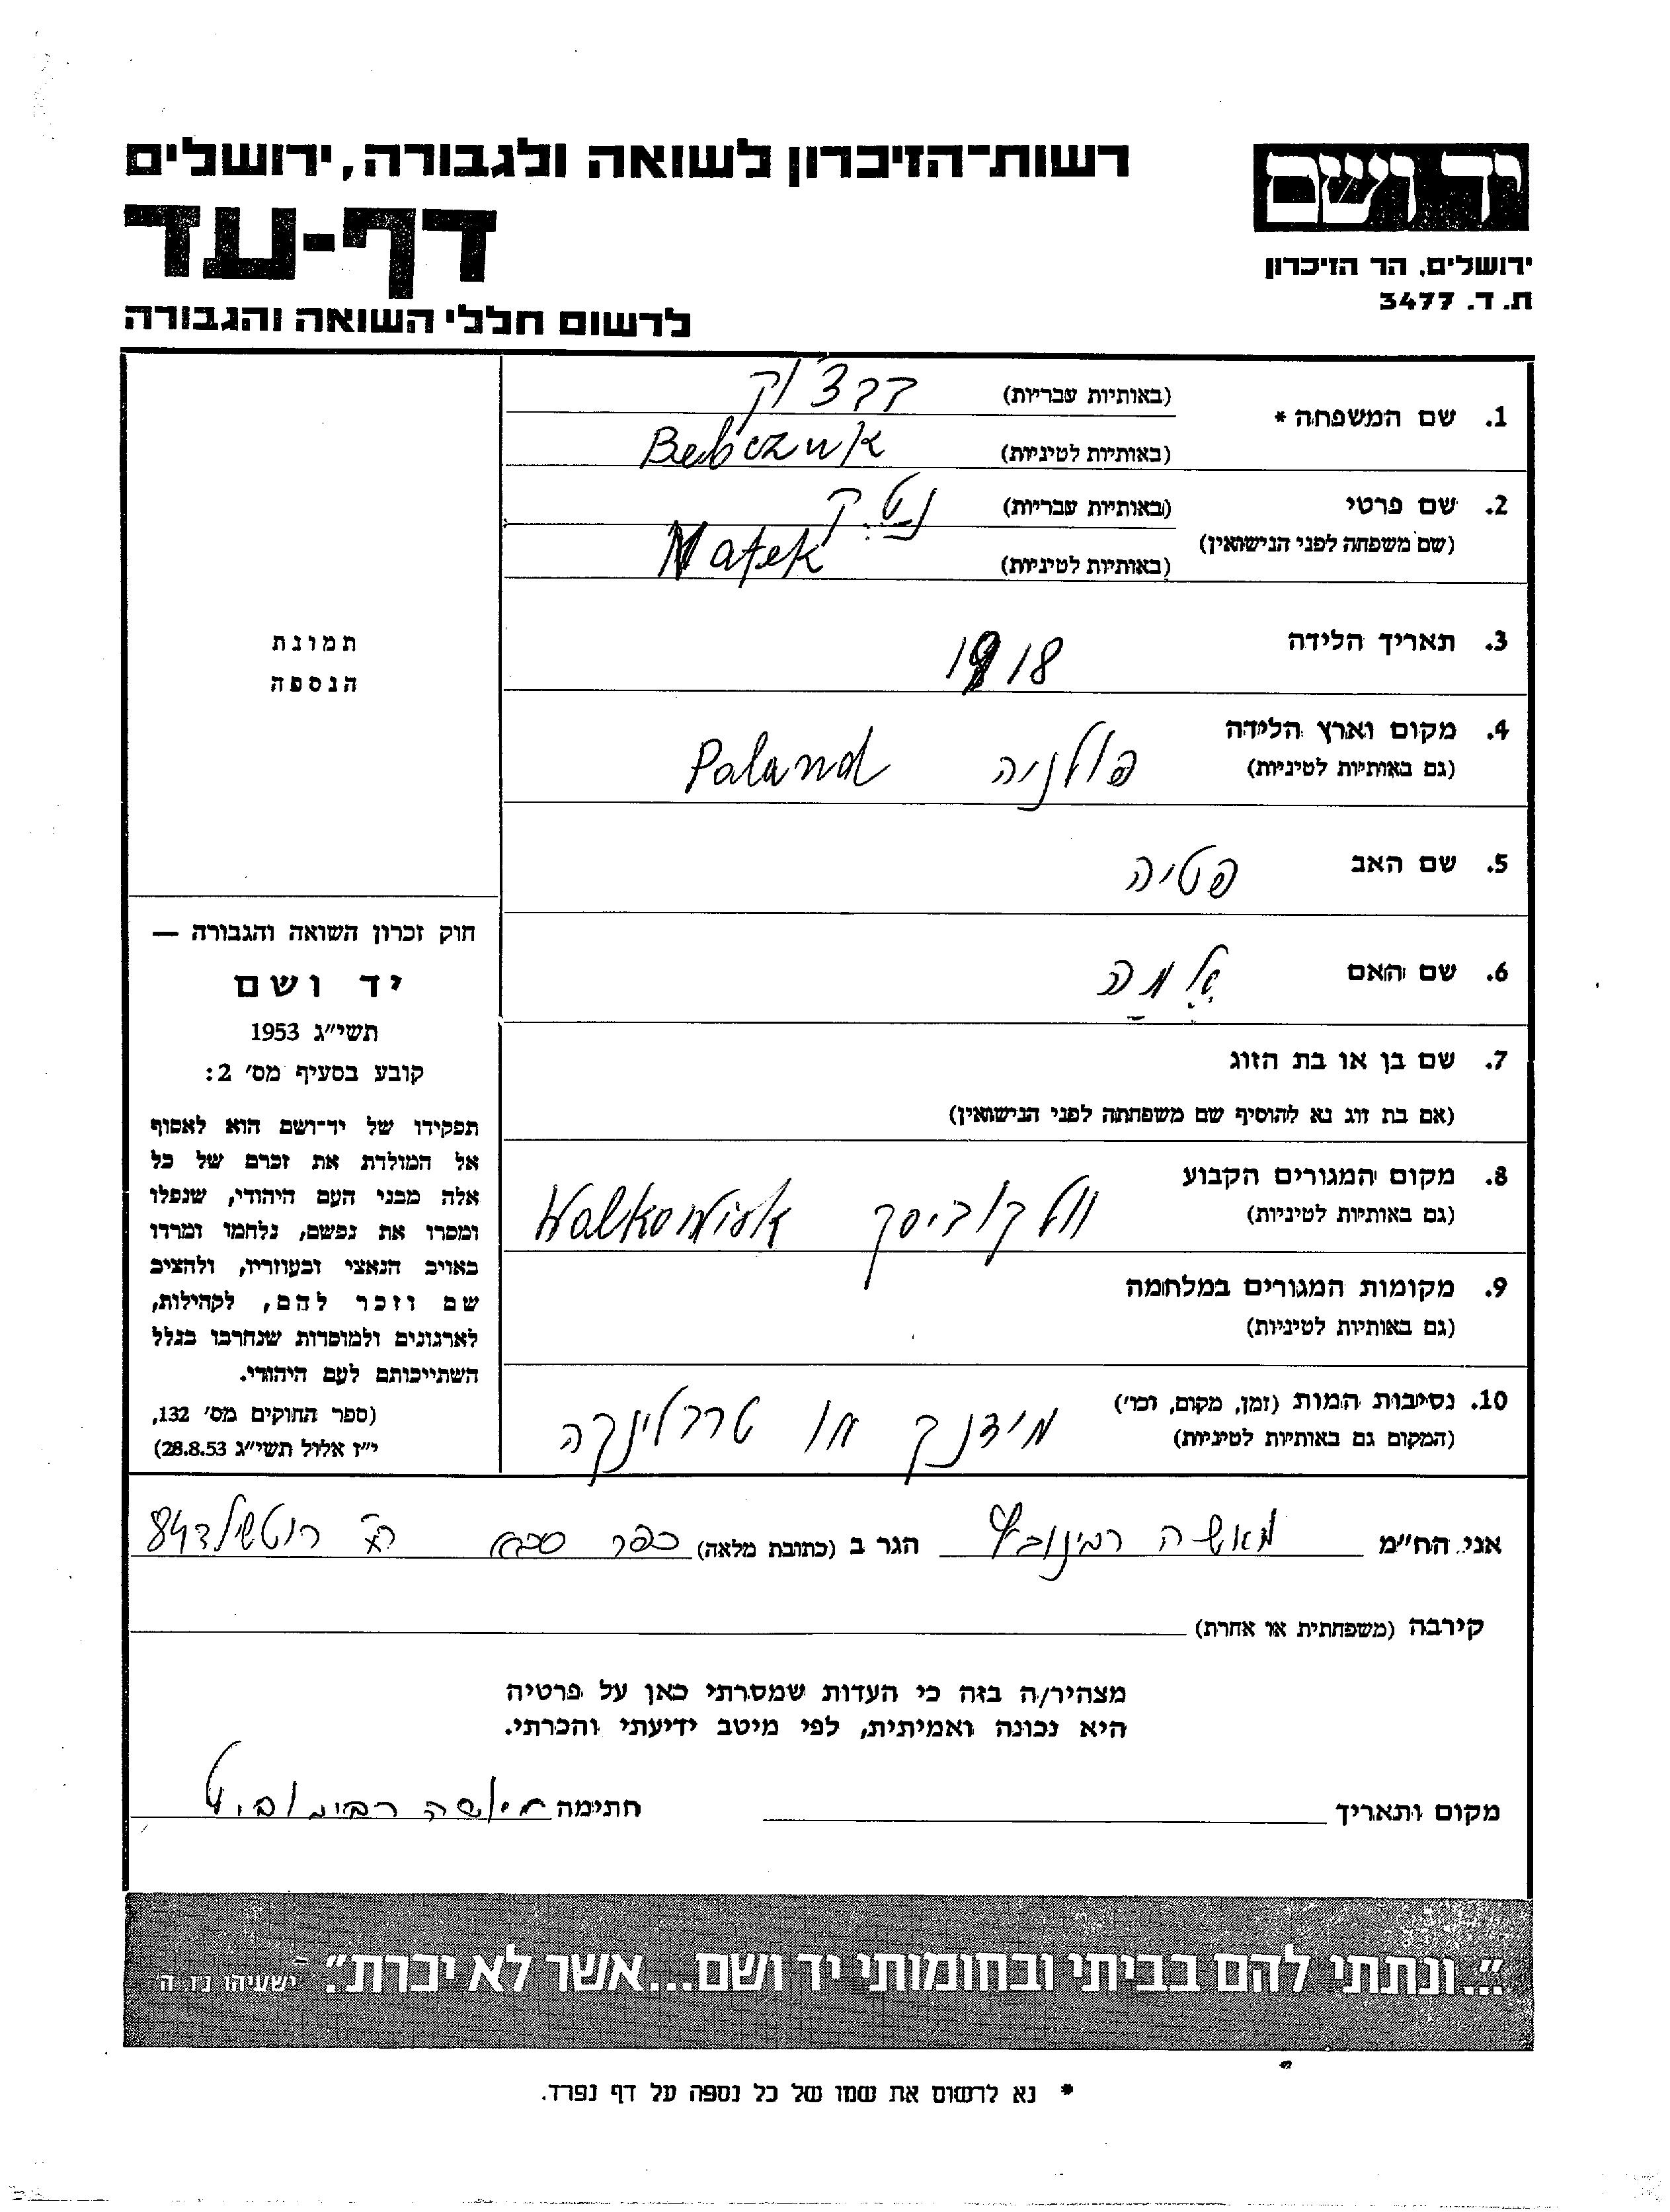 רשות־הזיכרון לשואה ולגבורה, ירושלים
יד ושם
דף-עד
ירושלים, הר הזיכרון
ת. ד. 3477
לרשום חללי השואה והגבורה
1. שם המשפחה * (באותיות עבריות)
(באותיות לטיניות) Bebczuk
2. שם פרטי (באותיות עבריות) נטק
(שם משפחה לפני הנישואין) (באותיות לטיניות) Natek
3. תאריך הלידה 1918
4. מקום וארץ הלידה פולניה Poland
(גם באותיות לטיניות)
5. שם האב פטיה
6. שם האם
7. שם בן או בת הזוג
(אם בת זוג נא להוסיף שם משפחתה לפני הנישואין)
8. מקום המגורים הקבוע וולקוביסק Walkowisk
(גם באותיות לטיניות)
9. מקומות המגורים במלחמה
(גם באותיות לטיניות)
10. נסיבות המות (זמן, מקום, וכו׳) מידנק או טרבלינקה
(המקום גם באותיות לטיניות)
תמונת
הנספה
חוק זכרון השואה והגבורה —
יד ושם
תשי״ג 1953
קובע בסעיף מס׳ 2:
תפקידו של יד־ושם הוא לאסוף
אל המולדת את זכרם של כל
אלה מבני העם היהודי, שנפלו
ומסרו את נפשם, נלחמו ומרדו
באויב הנאצי ובעוזריו, ולהציב
שם וזכר להם, לקהילות,
לארגונים ולמוסדות שנחרבו בגלל
השתייכותם לעם היהודי.
(ספר החוקים מס׳ 132,
י״ז אלול תשי״ג 28.8.53)
אני הח״מ מאשה רבינוביץ הגר ב (כתובת מלאה) כפר סבא רח׳ רוטשילד 84
קירבה (משפחתית או אחרת)
מצהיר/ה בזה כי העדות שמסרתי כאן על פרטיה
היא נכונה ואמיתית, לפי מיטב ידיעתי והכרתי.
מקום ותאריך חתימה מאשה רבינוביץ
״...ונתתי להם בביתי ובחומותי יד ושם...אשר לא יכרת״. ־ישעיהו נו, ה׳
* נא לרשום את שמו של כל נספה על דף נפרד.